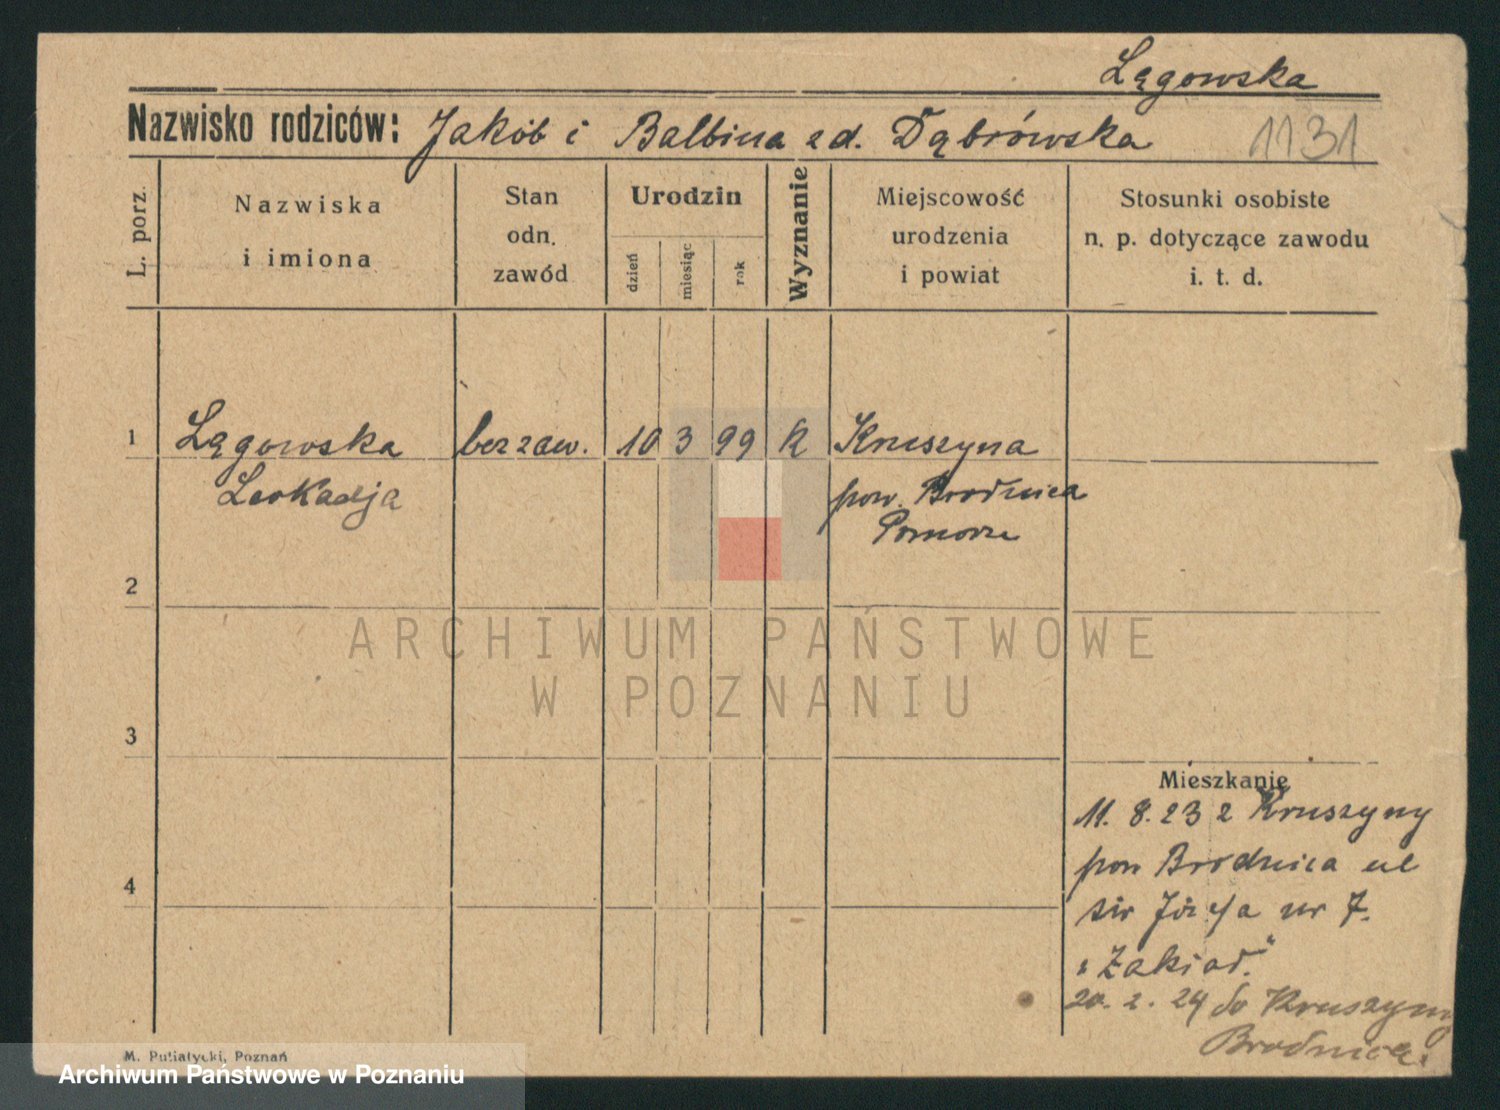 Lągowska
Nazwisko rodziców: Jakób i Balbina zd. Dąbrówska 1131
L. porz.
Nazwiska
i imiona
Stan
odn.
zawód
Urodzin
dzień
miesiąc
rok
Wyznanie
Miejscowość
urodzenia
i powiat
Stosunki osobiste
n. p. dotyczące zawodu
i. t. d.
1 Lągowska bez zaw. 10 3 99 k Kruszyna
Leokadja pow. Brodnica
Pomorze
2
ARCHIWUM PAŃSTWOWE
W POZNANIU
3
Mieszkanie
11. 8. 23 z Kruszyny
pow Brodnica ul
św Józefa nr 7.
"Zakład."
4
20. 2. 24 do Kruszyny
Brodnica.
M. Putiatycki, Poznań
Archiwum Państwowe w Poznaniu